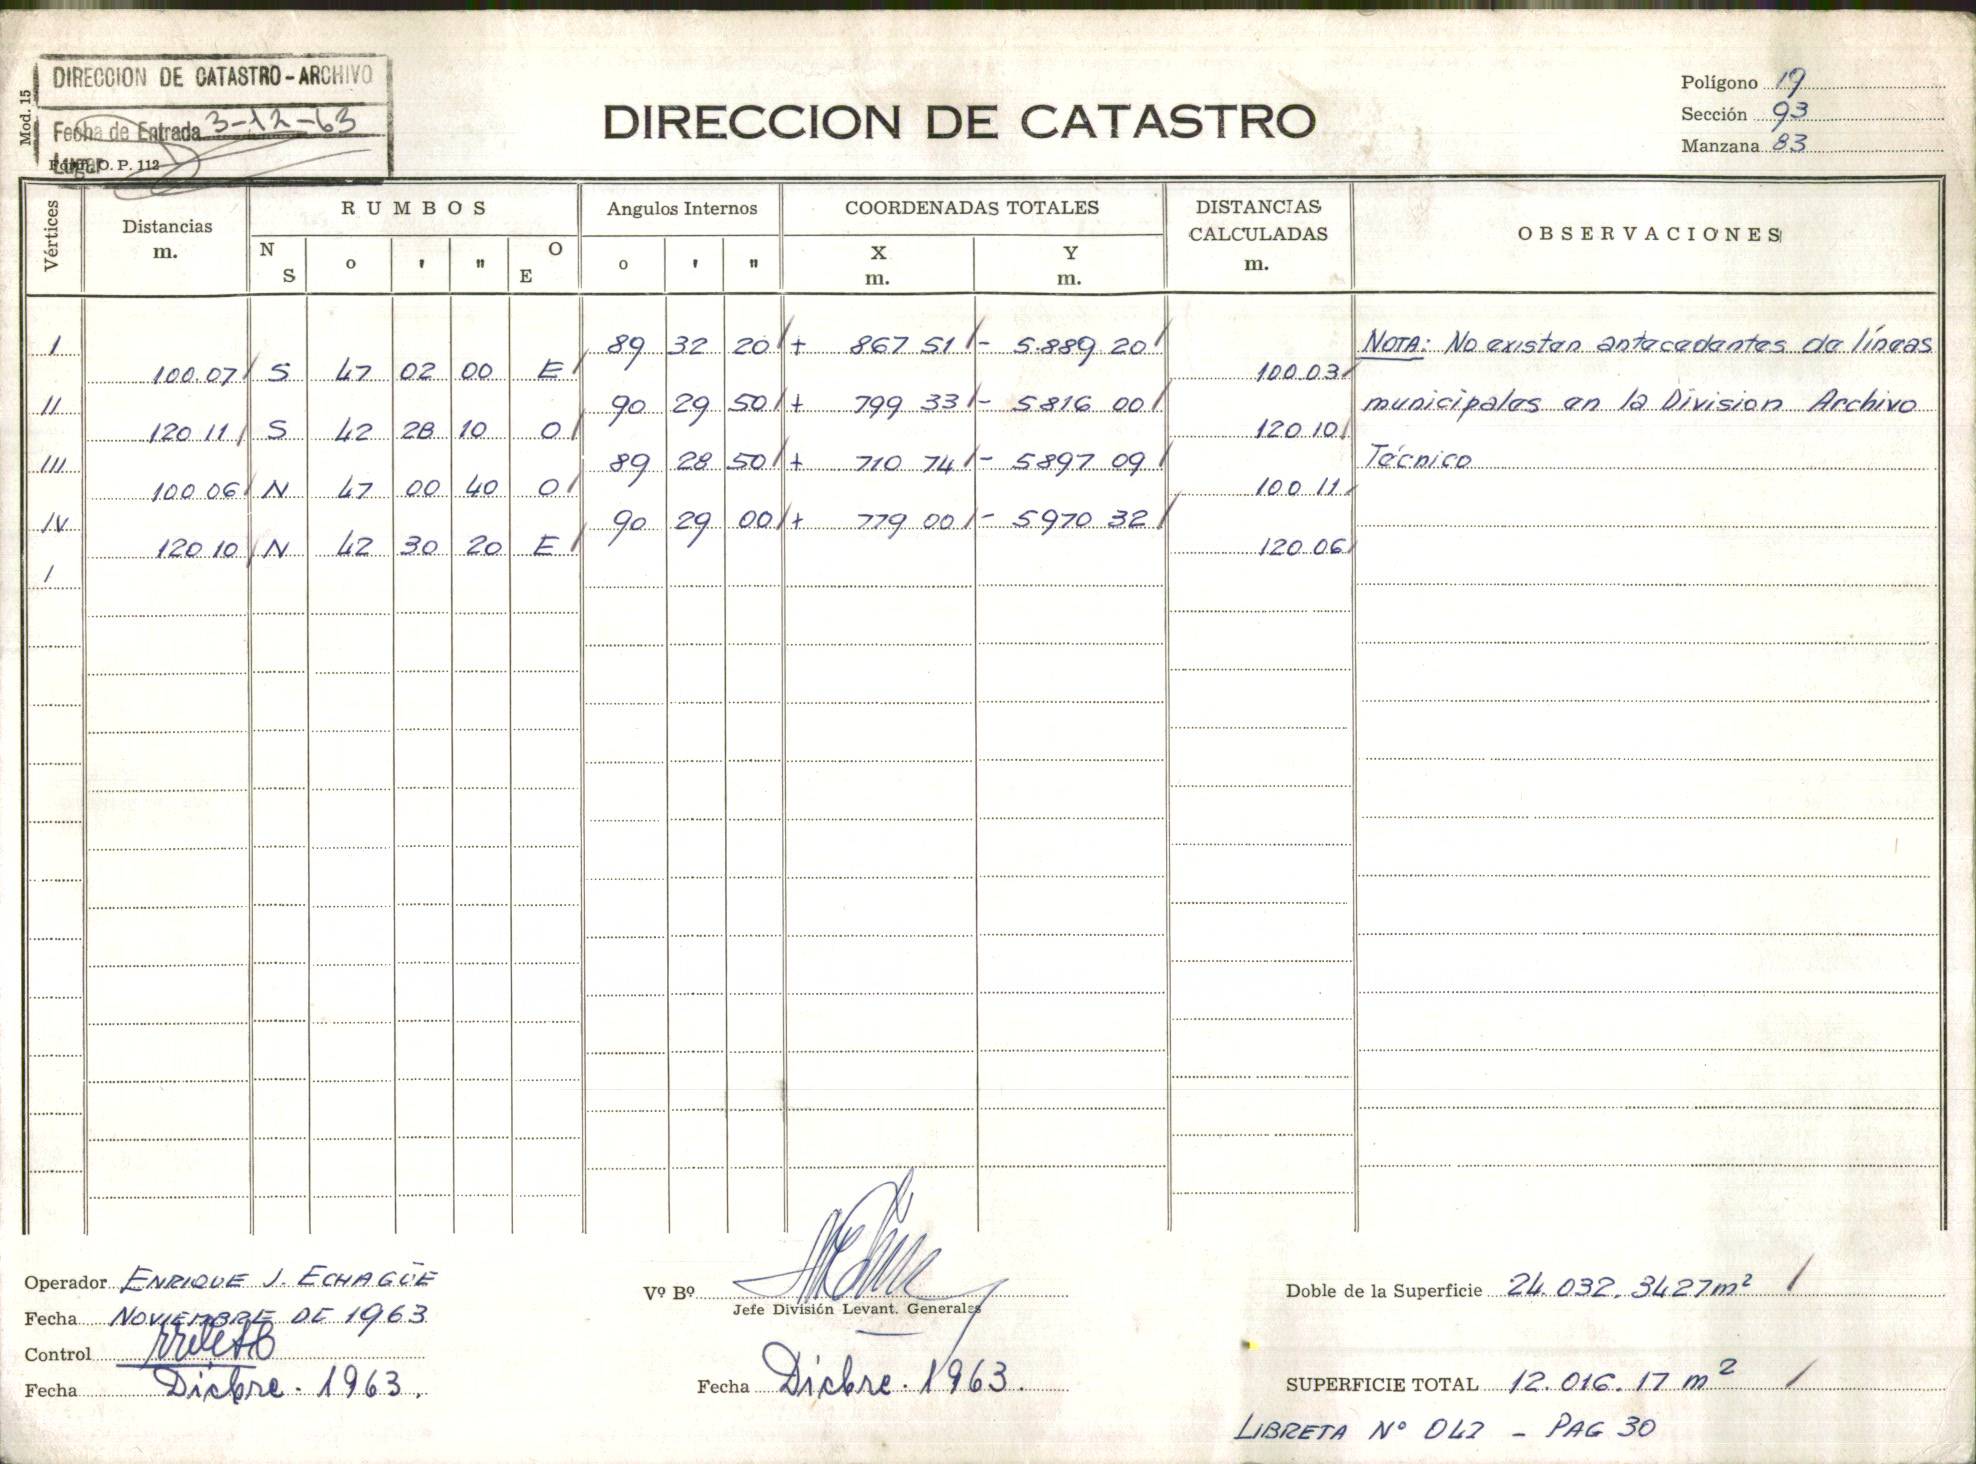 DIRECCION DE CATASTRO - ARCHIVO
Fecha de Entrada 3-12-63
Lugar
Mod. 15
O. P. 112
DIRECCION DE CATASTRO
Polígono 19
Sección 93
Manzana 83
Vértices
Distancias
m.
RUMBOS
N
S
o
'
"
O
E
Angulos Internos
o
'
"
COORDENADAS TOTALES
X
m.
Y
m.
DISTANCIAS
CALCULADAS
m.
OBSERVACIONES
I 89 32 20 + 867 51 - 5.889 20 NOTA: No existen antecedentes de líneas
100.07 S 47 02 00 E 100.03
II 90 29 50 + 799 33 - 5816 00 municipales en la Division Archivo
120 11 S 42 28 10 O 120 10
III 89 28 50 + 710 74 - 5897 09 Técnico
100 06 N 47 00 40 O 100 11
IV 90 29 00 + 779 00 - 5970 32
120 10 N 42 30 20 E 120.06
I
Operador ENRIQUE J. ECHAGÜE
Fecha NOVIEMBRE DE 1963
Control
Fecha Dicbre. 1963.
Vº Bº
Jefe División Levant. Generales
Fecha Dicbre. 1963.
Doble de la Superficie 24.032.3427 m²
SUPERFICIE TOTAL 12.016.17 m²
LIBRETA Nº 042 - PAG 30